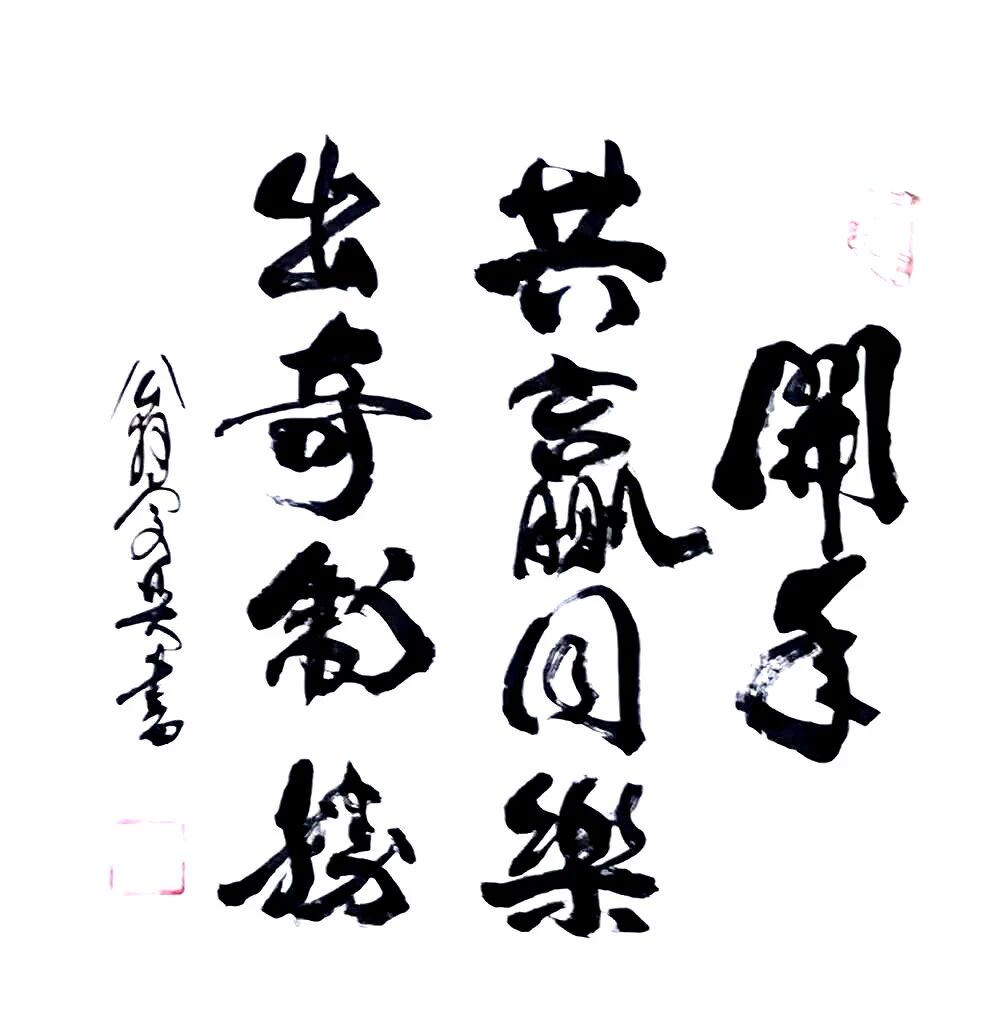 開年
共贏同樂
出奇制勝
書